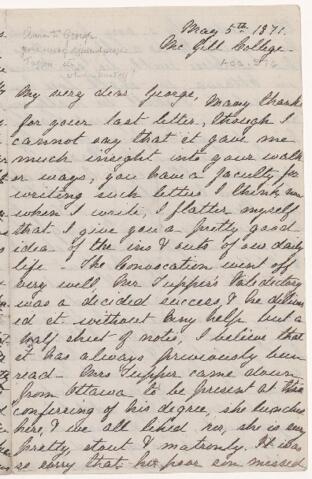 Anna to George
May 5th 1871.
McGill College
My very dear George, Many thanks
for your last letter, though I
cannot say that it gave me
much insight into your walk
or ways, you have a faculty for
writing such letters I think, now
when I write, I flatter myself
that I give you a pretty good
idea of the ins & outs of our daily
life - The Convocation went off
very well, Mr Tupper's Valedictory
was a decided success, & he deliver
ed it without any help but a
half sheet of notes, I believe that
it has always previously been
read - Mrs Tupper came down
from Ottawa to be present at the
conferring of his degree, she lunched
here & we all liked her, she is very
pretty stout & matronly. It was
so sorry that her poor son missed